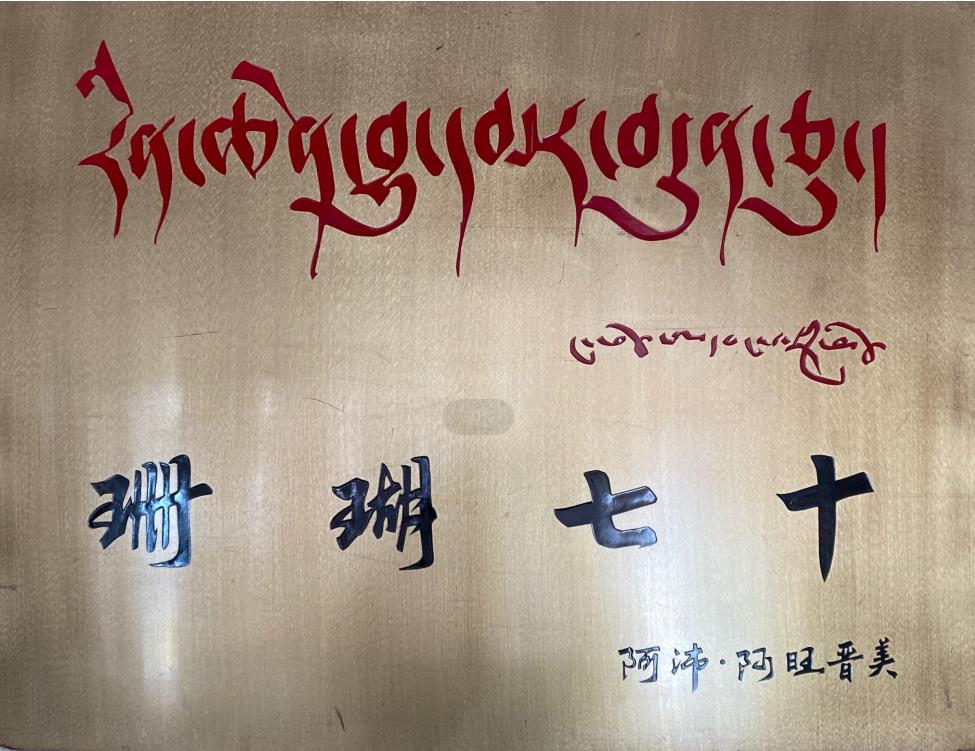 རིན་ཆེན་བྱུ་དམར་བདུན་ཅུ།
珊瑚七十
阿沛·阿旺晋美